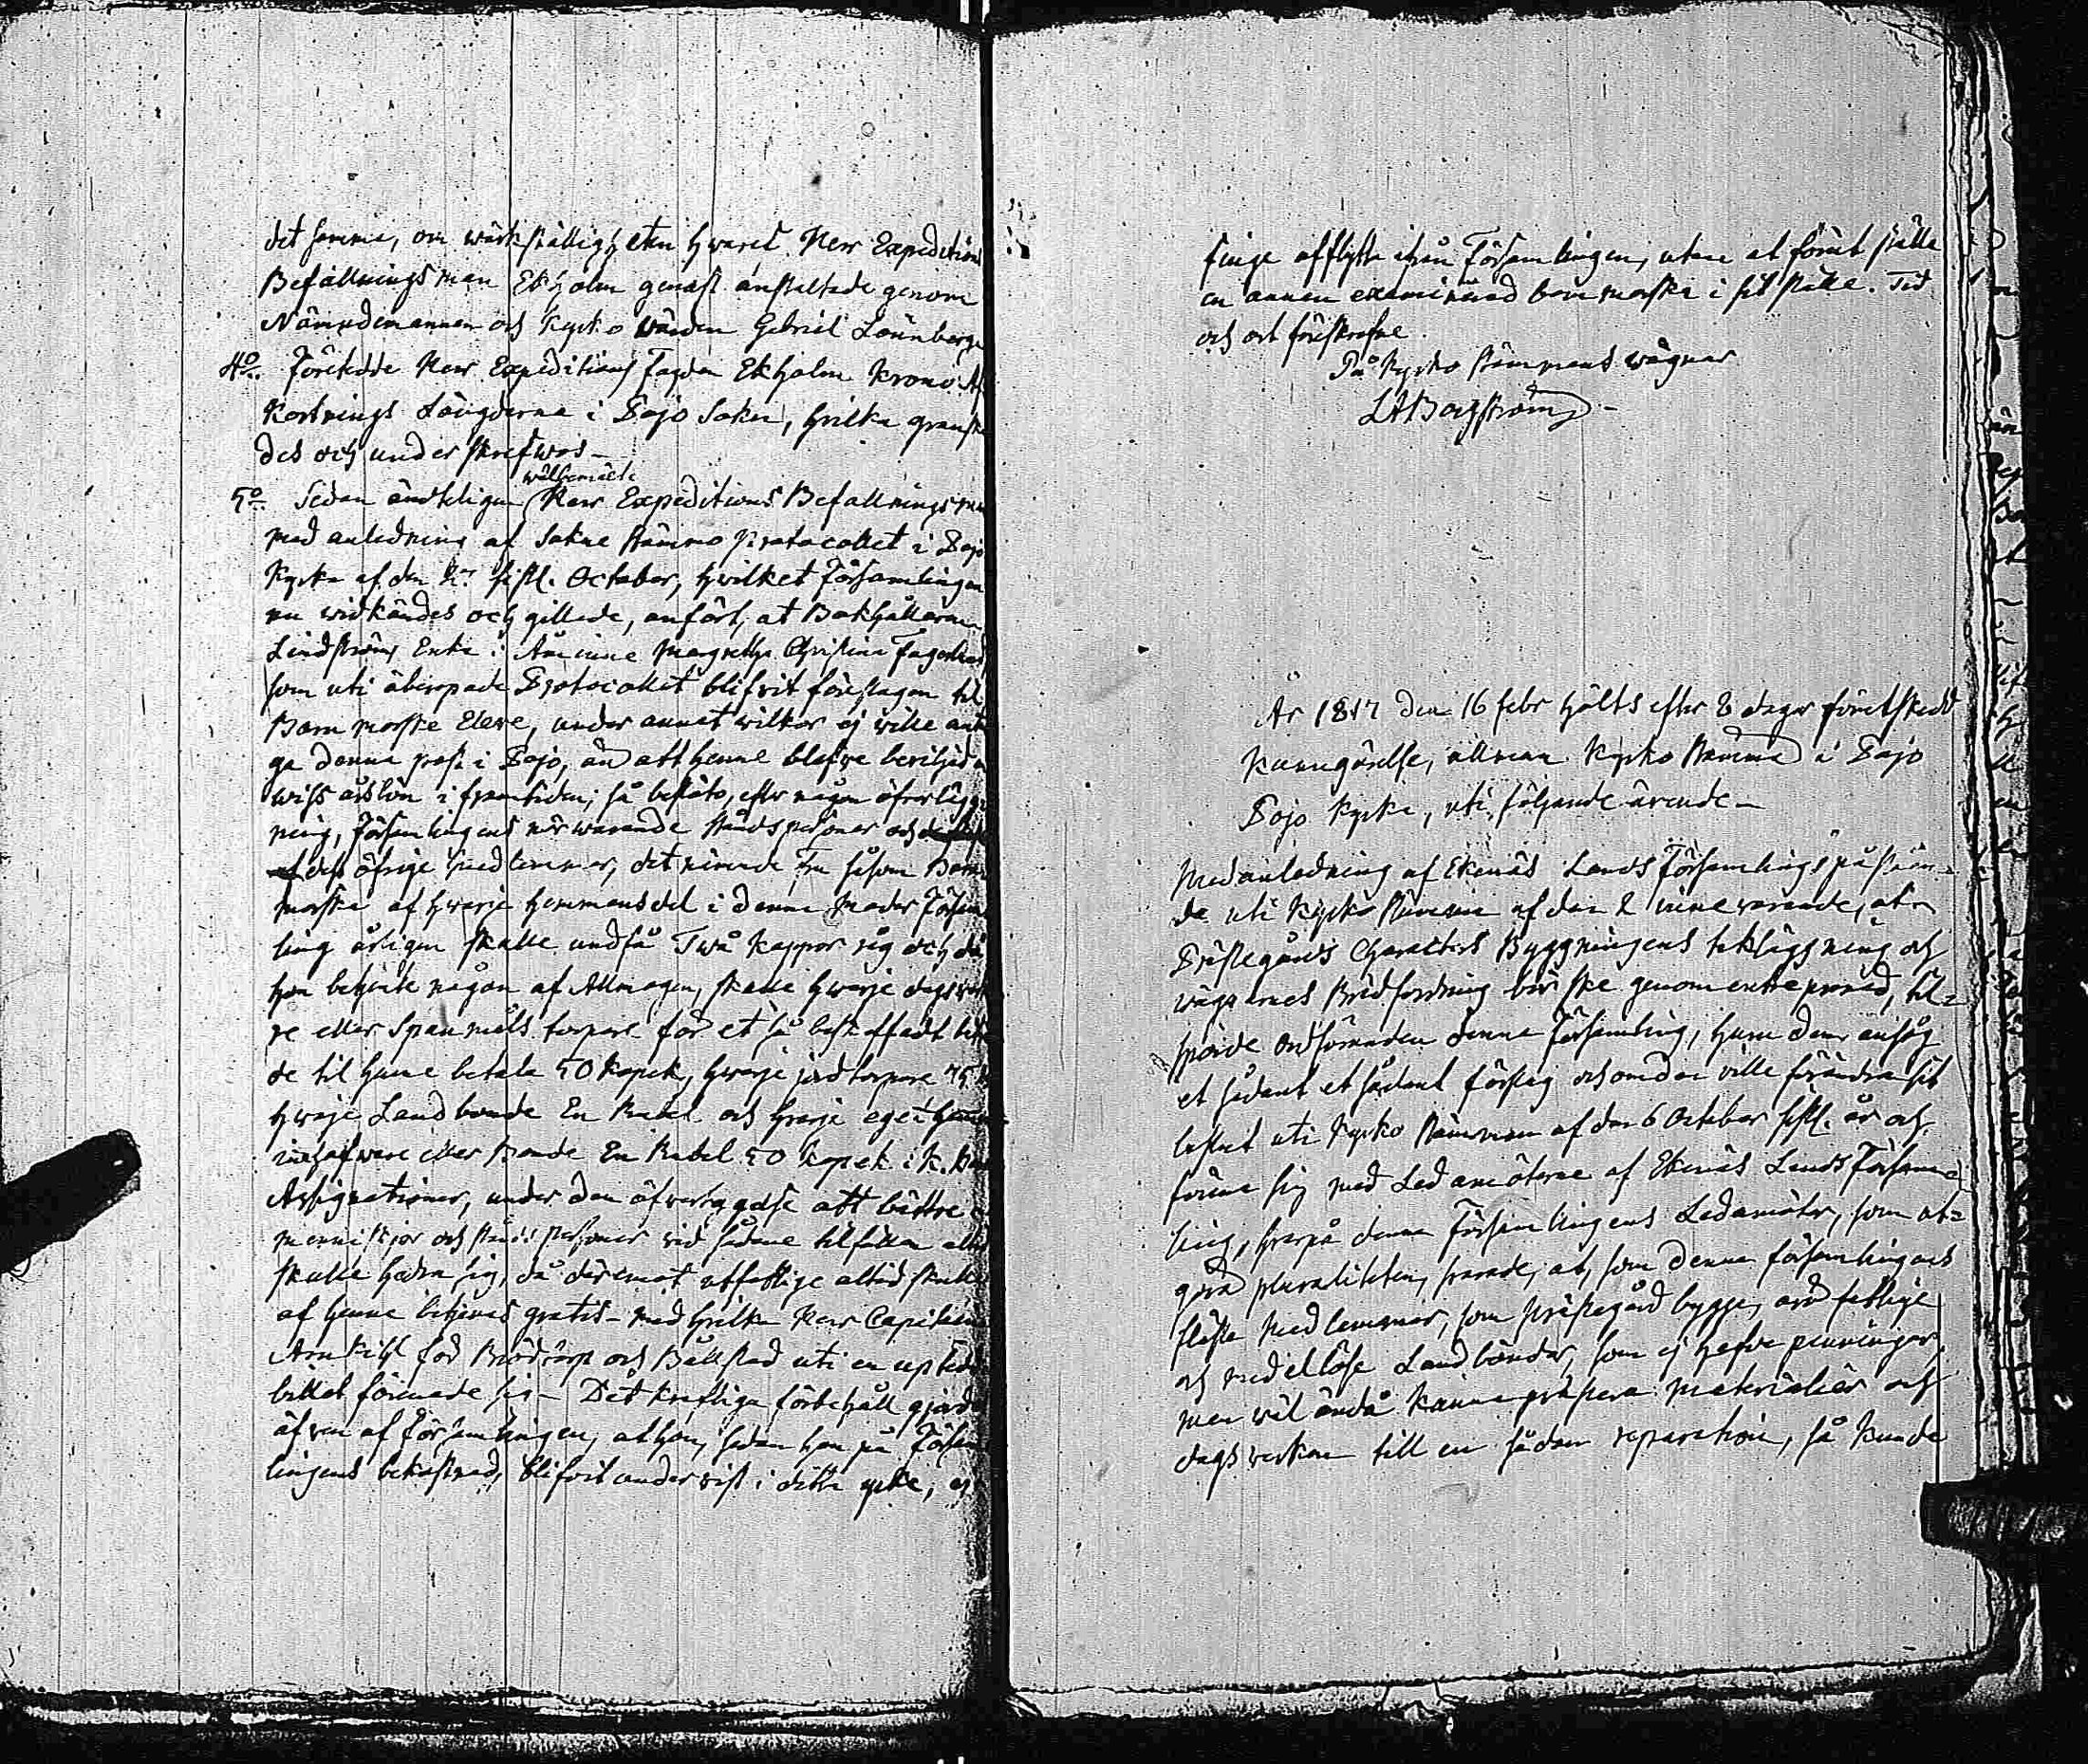 det samma, om wärkställigheten hwaraf Herr Expeditions
Befallningsman Ekholm genast anstaltade genom
Nämndemannen och Kyrko wärden Gabriel Lönnberg
4:o Företedde Herr Expeditions Fogden Ekholm Krono Af
Kortnings Längderna i Pojo Soken, hvilka granska
des och underskrefwos –
wälbemälte
5:o Sedan ändteligen Herr Expeditions Befallningsman
med anledning af Sokne Stämmo Protocollet i Pojo
Kyrka af den sistl. October, hwilket Församlingen
nu widkändes och gillade, anfört, at Bokhållaren
Lindströms Enka i Åminne Margretha Christina Fagerlund
som uti åberopade Protocollet blifvit föreslagen til
Barnmorske Eleve, under annat wilkor ej wille anta
ga denna post i Pojo, än att henne blefve beviljad en
wiss årslön i framtiden; så beslöto, efter någon öfverlägg
ning, Församlingens närwarande Ståndspersoner och
dess öfrige medlemmar, det nämnde Fru såsom Barn
morska af hwarje hemmansdel i denna Moder Försam
ling årligen skulle undfå Twå Kappor råg och då
hon betjente någon af Allmogen, skulle hwarje dagswerka
re eller Spanmåls torpare för et så beskaffadt
de til henne betala 50 Kopek, hwarje jord torpare 75
hwarje Landbonde En Rubel och hwarje eget
innehafware eller Bonde En Rubel 50 Kopek i R. Banco
Assignationer, under den öfvertygelse att bättre
menniskjor och Ståndspersoner vid sådane tilfällen
skulle hedra sig, då däremot utfattige altid skulle
af henne betjenas gratis – med hvilka Herr Capitaine
Armfelt för Brödtorp och Bällstad uti en upläst
billet förenade sig – Det kraftiga förbehåll gjorde
äfven af Församlingen, at hon, sedan hon på Försam
lingens bekostnad, blifvit undervist i detta yrke, ej
finge afflytta ifrån Församlingen, utan at förut ställa
en annan examinerad barnmorska i sit ställe. Tid
och ort föreskrefne
På Kyrko Stämmans wägnar
LABorgström –
År 1817 den 16 febr hölts efter 8 dagar förutskedd
Kunngörelse, allmän Kyrko Stämma i Pojo
Pojo Kyrka, uti följande ärende –
Med anledning af Ekenäs Lands Församlings påståen-
de uti Kyrko Stämman af den 2 innevarande, at
Prästegårds Characters Byggningens takläggning och
väggarnes Brädfordring bör ske genom entreprenad, til-
sporde ordföranden denna Församling, huru den ansåg
et sådant et sådant förslag och om den ville förändra sit
beslut uti Kyrko Stämman af den 6 October sistl. år och
förena sig med Ledamöterne af Ekenäs Lands Försam-
ling, hvarpå denna Församlingens Ledamöter, som ut-
göra pluraliteten, svarade, at, som denna församlingens
flästa medlemmar, som prästegård bygga, äro fattige
och medellöse Landbönder, som ej hafva penningar,
men väl ändå kunna præstera materialier och
dagsverken till en sådan reparation, så kunde